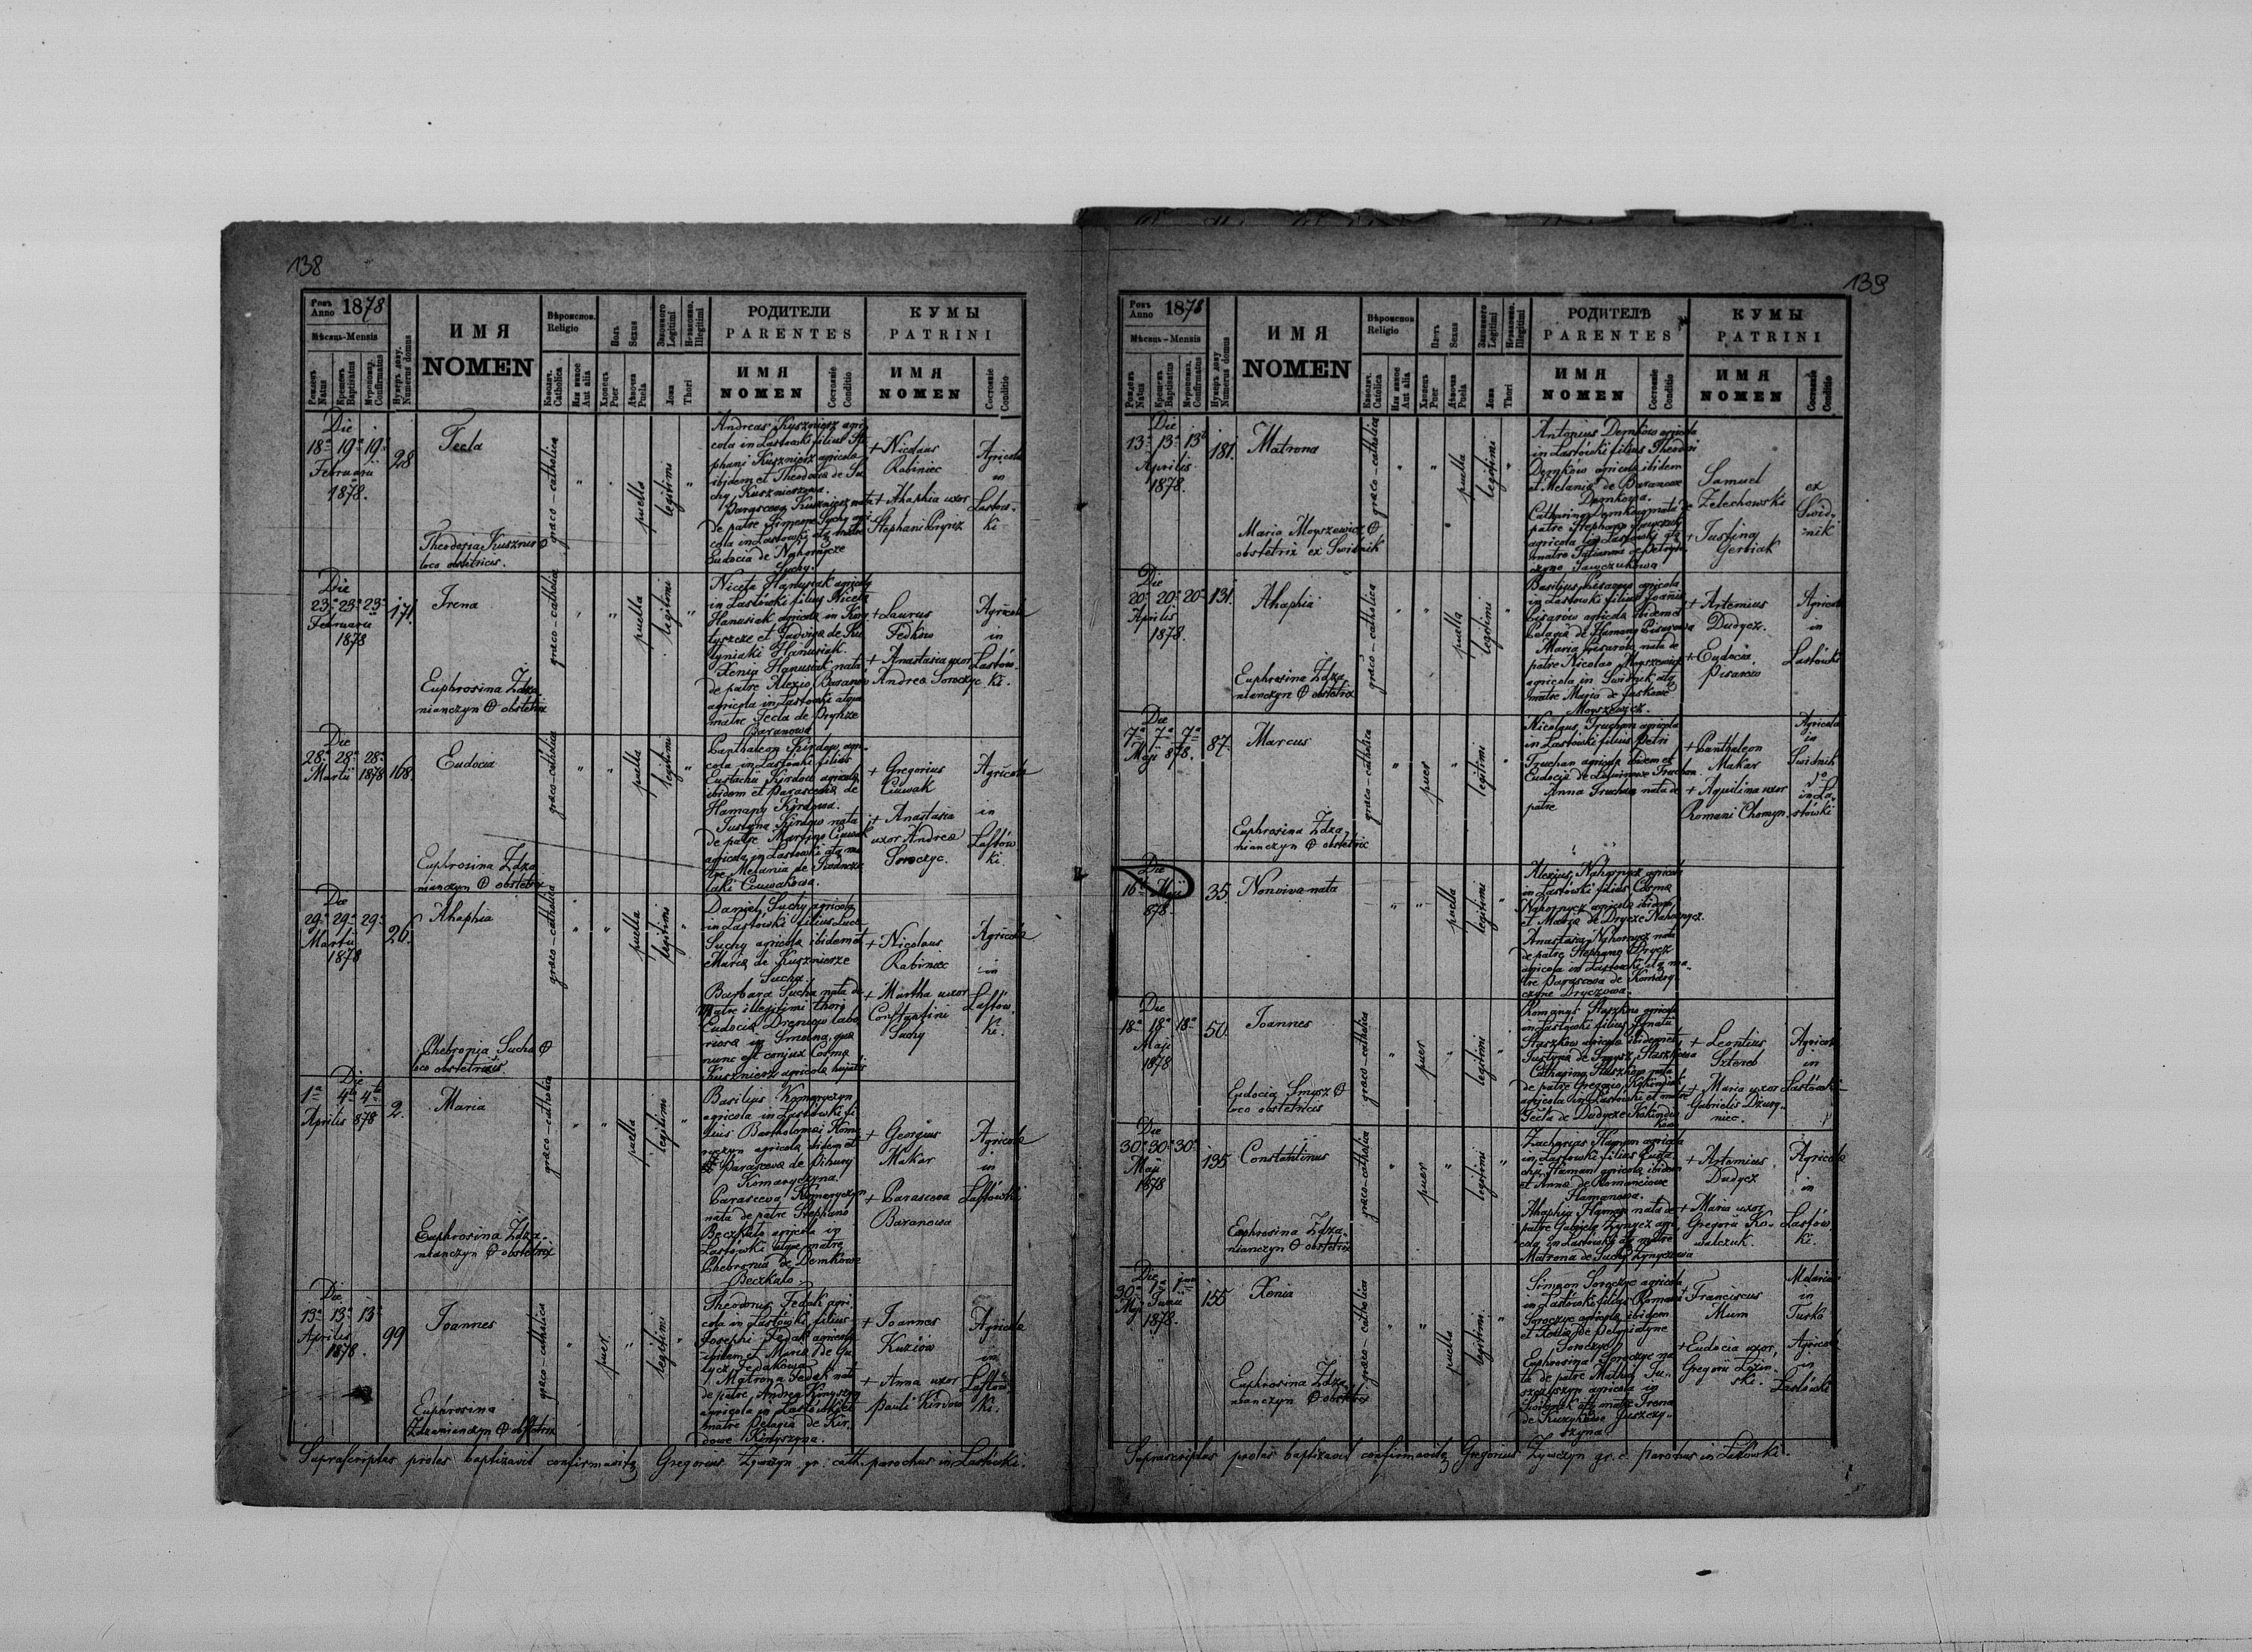 138
Рокъ Anno 1878
Мѣсяць-Mensis
Рожденъ Natus
Крещенъ Baptisatus
Мѵропомаз. Confirmatus
Нумеръ дому. Numerus domus
ИМЯ
NOMEN
Вѣроиспов. Religio
Католич. Catholica
Или инное Aut alia
Полъ Sexus
Хлопецъ Puer
Дѣвочка Puela
Законного Legitimi
Незаконно. Illegitimi
Ложа Thori
РОДИТЕЛИ
PARENTES
ИМЯ
NOMEN
Состояніе Conditio
КУМЫ
PATRINI
ИМЯ
NOMEN
Состояніе Conditio
Die
18ª 19ª 19ª
Februarii
1878.
28
Tecla
Theodosia Kusznier
loco obstetricis.
græco-catholica
puella
legitimi
Andreas Kuszniersz agri
cola in Lastowki filius Ste
phani Kuszniersz agricola
ibidem et Theodora de Su
chy Kusznierszowa.
Parasceva Kuszniersz nata
de patre Simeone Suchy agri
cola in Lastowki atq matre
Eudocia de Nahornycze
Suchy.
+ Nicolaus
Rabiniec
+ Ahaphia uxor
Stephani Pryriz
Agricola
in
Lastow-
ki
Die
23ª 23ª 23ª
Februarii
1878
171.
Irena
Euphrosina Zdza
nianczyn obstetrix
græco-catholica
puella
legitimi
Niceta Hanusiak agricola
in Lastówki filius Niceta
Hanusiak agricola in Kory
tyszcze et Hedviga de Ku
tyniaki Hanusiak.
Xenia Hanusiak nata
de patre Alexio Baranow
agricola in Lastowki atque
matre Tecla de Pryhze
Baranowa
+ Laurus
Fedkow
+ Anastasia uxor
Andrea Soroczyc
Agricola
in
Lastów-
ki.
Die
28ª 28ª 28ª
Martii 1878
168.
Eudocia
Euphrosina Zdza
nianczyn obstetrix
græco-catholica
puella
legitimi
Panthaleon Kirdow agri-
cola in Lastowki filius
Eustachii Kirdow agricola
ibidem et Parasceva de
Hamany Kirdowa.
Justyna Kirdow nata
de patre Martino Ciuwak
agricola in Lastowki atq ma
tre Melania de
laki Ciuwakowa.
+ Gregorius
Ciuwak
+ Anastasia
uxor Andrea
Soroczyc.
Agricola
in
Lastów
ki.
Die
29ª 29ª 29ª
Martii
1878
26.
Ahaphia
Chebronia Sucha
loco obstetricis
græco-catholica
puella
legitimi
Daniel Suchy agricola
in Lastówki filius Luca
Suchy agricola ibidem et
Maria de Kusznierze
Sucha.
Barbara Sucha nata de
matre illegitimi thori
Eudocia Dreniow labo
riosa in Smolna, quæ
nunc est conjux Cosma
Kuszniersz agricola hujatis
+ Nicolaus
Rabiniec
+ Martha uxor
Constantini
Suchy
Agricola
in
Lastów
ki.
Die
1ª 4ta 4ta
Aprilis 878
2.
Maria
Euphrosina Zdza-
nianczyn obstetrix
græco-catholica
puella
legitimi
Basilius Komaryczyn
agricola in Lastówki fi
lius Bartholomæi Koma
ryczyn agricola ibidem et
Parasceva de Pihury
Komaryczyna.
Parasceva Komaryczyn
nata de patre Stephano
Beczkalo agricola in
Lastówki atque matre
Chebronia de Demkowe
Beczkalo.
+ Georgius
Makar
+ Parasceva
Baranowa
Agricola
in
Lastówki
Die
13ª 13ª 13ª
Aprilis
1878.
99
Joannes
Euphrosina
Zdzanianczyn obstetrix
græco-catholica
puer
legitimi
Theodorus Fedak agri-
cola in Lastówki filius
Josephi Fedak agricola
ibidem et Maria de Ga
lycz Fedakowa
Matrona Fedak nata
de patre Andrea Kinyszyn
agricola in Lastowki et
matre Pelagia de Kir
dowe Kinyszyna.
+ Joannes
Kuziow
+ Anna uxor
Pauli Kirdow
Agricola
in
Lastow
ki.
Suprascriptas proles baptizavit confirmavitq Gregorius Zywczyn gr. cath. parochus in Lastówki.
139
Рокъ Anno 1878
Мѣсяць-Mensis
Рожденъ Natus
Крещенъ Baptisatus
Мѵропомаз. Confirmatus
Нумеръ дому Numerus domus
ИМЯ
NOMEN
Вѣроиспов. Religio
Католич. Catolica
Или инное Aut alia
Плоть Sexus
Хлопецъ Puer
Дѣвочка Puella
Законного Legitimi
Незаконно. Illegitimi
Ложа Thori
РОДИТЕЛѢ
PARENTES
ИМЯ
NOMEN
Состояніе Conditio
КУМЫ
PATRINI
ИМЯ
NOMEN
Состояніе Conditio
Die
13ª 13ª 13ª
Aprilis
1878.
181.
Matrona
Maria Moyszewicz
obstetrix ex Swidnik
græco-catholica
puella
legitimi
Antonius Demkow agricola
in Lastówki filius Theodori
Demków agricola ibidem
et Melania de Baranowe
Demkowa.
Catharina Demkow nata de
patre Stephano
agricola in Lastowki atq
matre Tatianna de Petry
czyne
Samuel
Zelechowski
+ Justina
Gerbiak
ex
Swid-
nik
Die
20ª 20ª 20ª
Aprilis
1878.
131.
Ahaphia
Euphrosina Zdza
nianczyn obstetrix
græco-catholica
puella
legitimi
Basilius Pisarow agricola
in Lastowki filius Joannis
Pisarow agricola ibidem et
Pelagia de Hamany Pisarowa
Maria Pisarow nata de
patre Nicolao Moyszewicz
agricola in Swidnik atq
matre Maria de Jaskowe
Moyszewicz.
+ Artemius
Dudycz.
+ Eudocia
Pisarow
Agricola
in
Lastówki
Die
7ª 7ª 7ª
Maji 878.
87.
Marcus
Euphrosina Zdza
nianczyn obstetrix
græco-catholica
puer
legitimi
Nicolaus Truchan agricola
in Lastowki filius Petri
Truchan agricola ibidem et
Eudocia de Truchan.
Anna Truchan nata de
patre
+ Panthaleon
Makar
+ Aquilina uxor
Romani Chomyn.
Agricola
in
Swidnik
do
in La-
stówki
Die
16ª Maji
878.
35.
Nonviva nata
puella
legitimi
Alexius Nahornycz agricola
in Lastowki filius Cosma
Nahornycz agricola ibidem
et Maria de Drycze Nahornycz.
Anastasia Nahornycz nata
de patre Stephano Drycz
agricola in Lastowki atq ma-
tre Parasceva de Komary
czyne Dryczowa.
Die
18ª 18ª 18ª
Maji
1878
50.
Joannes
Eudocia Smysz
loco obstetricis
græco-catholica
puer
legitimi
Romanus Staszkow agricola
in Lastówki filius Ignatii
Staszkow agricola ibidem et
Justyna de Smysz Staszkowa
Catharina Staszkow nata
de patre Gregorio Kokindiak
agricola in Lastowki et matre
Tecla de Dudycze Kokindia
kow
+ Leontius
Sztereb
+ Maria uxor
Gabrielis Dzury-
niec.
Agricola
in
Lastówki
Die
30ª 30ª 30ª
Maji
1878
135
Constantinus
Euphrosina Zdza
nianczyn obstetrix
græco-catholica
puer
legitimi
Zacharias Haman agricola
in Lastowki filius Eusta
chii Haman agricola ibidem
et Anna de Romanciowe
Hamanowa.
Ahaphia Haman nata de
patre Gabriele Zynycz agri
cola in Lastówki atq matre
Matrona de Suchy Zynyczowa
+ Artemius
Dudycz
+ Maria uxor
Gregorii Ko-
walczuk.
Agricola
in
Lastów
ki.
Die
30ª 1ª 1ma
Maji Junii
1878.
155
Xenia
Euphrosina Zdza
nianczyn obstetrix
græco-catholica
puella
legitimi
Simeon Soroczyc agricola
in Lastówki filius Romani
Soroczyc agricola ibidem
et Rosalia de Pelyniatyne
Soroczyc.
Euphrosina Soroczyc na
ta de patre Mathia Ju-
szczyszyn agricola in
Swidnik atq matre Irena
de Kuzykowe Juszczy-
szyna
+ Franciscus
Mum
+ Eudocia uxor
Gregorii Lozin-
ski.
Molarius
in
Turka
Agricola
in
Lastówki
Suprascriptas proles baptizavit confirmavitq Gregorius Zywczyn gr. c. parochus in Lastówki.